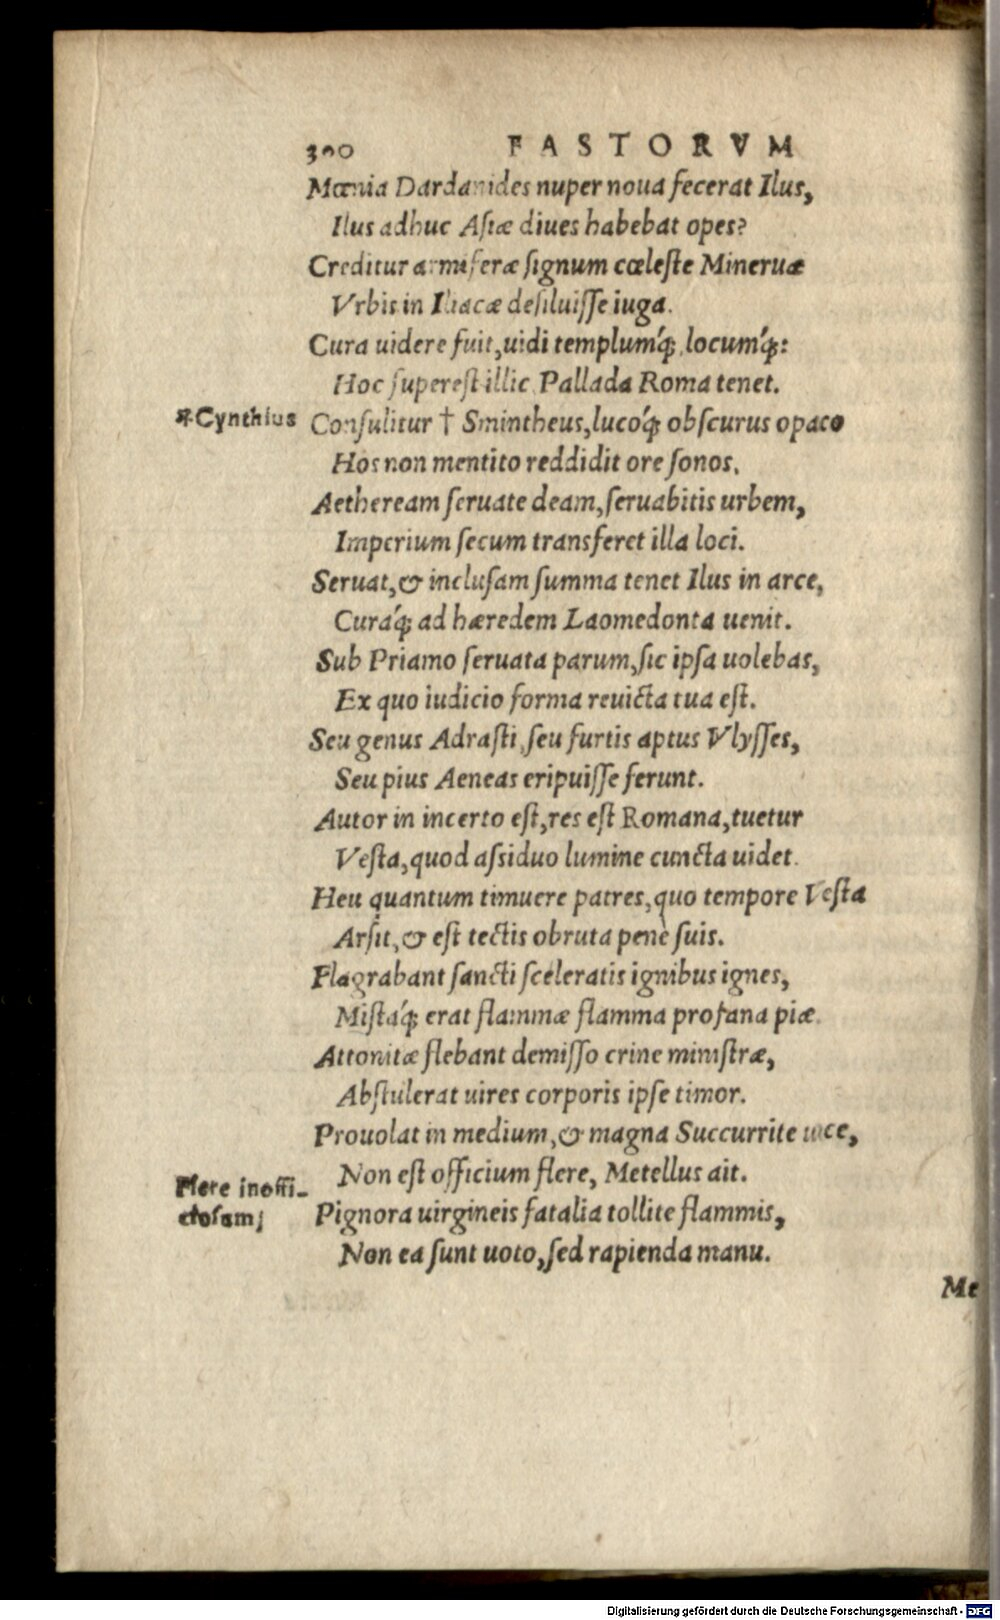 300 FASTORVM
Mœnia Dardanides nuper noua fecerat Ilus,
Ilus adhuc Asiæ diues habebat opes?
Creditur armiferæ signum cœleste Mineruæ
Vrbis in Iliacæ desiluisse iuga.
Cura uidere fuit, uidi templumq́;, locumq́;:
Hoc superest illic, Pallada Roma tenet.
*Cynthius
Consulitur † Smintheus, lucoq́; obscurus opaco
Hos non mentito reddidit ore sonos.
Aetheream seruate deam, seruabitis urbem,
Imperium secum transferet illa loci.
Seruat, & inclusam summa tenet Ilus in arce,
Curaq́; ad hæredem Laomedonta uenit.
Sub Priamo seruata parum, sic ipsa uolebas,
Ex quo iudicio forma reuicta tua est.
Seu genus Adrasti, seu furtis aptus Vlysses,
Seu pius Aeneas eripuisse ferunt.
Autor in incerto est, res est Romana, tuetur
Vesta, quod assiduo lumine cuncta uidet.
Heu quantum timuere patres, quo tempore Vesta
Arsit, & est tectis obruta penè suis.
Flagrabant sancti sceleratis ignibus ignes,
Mistaq́; erat flammæ flamma profana piæ.
Attonitæ flebant demisso crine ministræ,
Abstulerat uires corporis ipse timor.
Prouolat in medium, & magna Succurrite uoce,
Non est officium flere, Metellus ait.
Flere inoffi-
ciosam;
Pignora uirgineis fatalia tollite flammis,
Non ea sunt uoto, sed rapienda manu.
Me
Digitalisierung gefördert durch die Deutsche Forschungsgemeinschaft - DFG